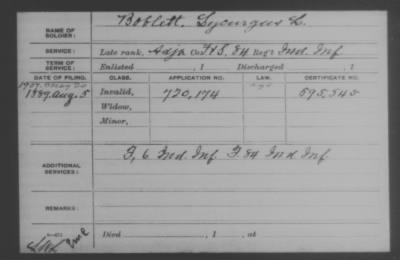 NAME OF SOLDIER: Boblett, Lycurgus L.
SERVICE: Late rank, Adjt Co. F&S, 84 Reg't Ind. Inf.
TERM OF SERVICE: Enlisted , 1 Discharged , 1
DATE OF FILING. CLASS. APPLICATION NO. LAW. CERTIFICATE NO.
1889, Aug. 5 Invalid, 720,174 595,545
Widow,
Minor,
ADDITIONAL SERVICES: F, 6 Ind. Inf. F. 84 Ind. Inf.
REMARKS:
Died , 1 , at